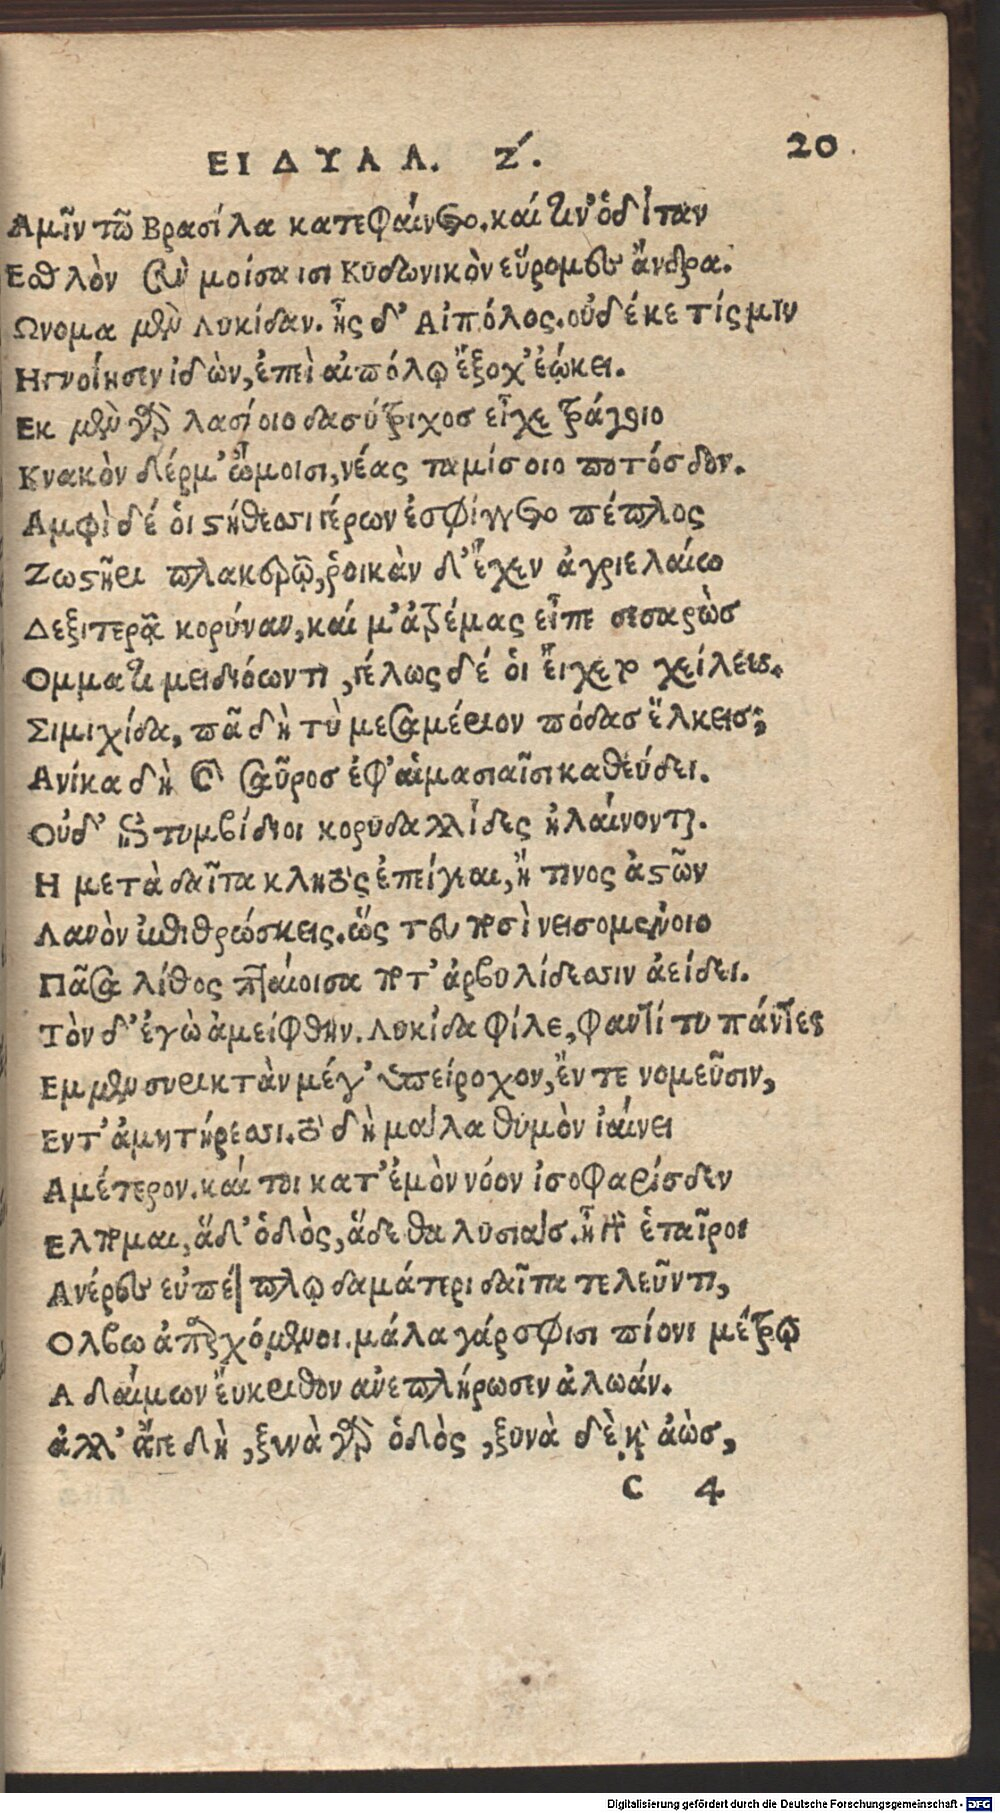 ΕΙΔΥΛΛ. Ζ΄. 20
Αμῖν τῶ Βρασίλα κατεφαίνετο. καί τιν' ὁδίταν
Εσθλὸν σὺν μοίσαισι Κυδωνικὸν εὕρομες ἄνδρα.
Ωνομα μὲν Λυκίδαν. ἦς δ' Αἰπόλος. οὐδέ κε τίς μιν
Ηγνοίησεν ἰδὼν, ἐπεὶ αἰπόλῳ ἔξοχ' ἐῴκει.
Εκ μὲν γὸ λασίοιο δασύτριχος εἶχε τράγοιο
Κνακὸν δέρμ' ὤμοισι, νέας ταμίσοιο ποτόσδον.
Αμφὶ δέ οἱ στήθεσσι γέρων ἐσφίγγετο πέπλος
Ζωστῆρι πλακερῷ, ῥοικὰν δ' ἔχεν ἀγριελαίω
Δεξιτερᾷ κορύναν, καί μ' ἀτρέμας εἶπε σεσαρὼς
Ομματι μειδιόωντι, γέλως δέ οἱ εἴχετο χείλευς.
Σιμιχίδα, πᾶ δὴ τὺ μεσαμέριον πόδας ἕλκεις;
Ανίκα δὴ καὶ σαῦρος ἐφ' αἱμασιαῖσι καθεύδει.
Οὐδ' ἐπιτυμβίδιοι κορυδαλλίδες ἠλαίνοντι.
Η μετὰ δαῖτα κλητὸς ἐπείγεαι, ἤ τινος ἀστῶν
Λανὸν ἐπιθρώσκεις. ὥς τευ ποσὶ νεισομένοιο
Πᾶσα λίθος πταίοισα ποτ' ἀρβυλίδεσσιν ἀείδει.
Τὸν δ' ἐγὼ ἀμείφθην. Λυκίδα φίλε, φαντί τυ πάντες
Εμμεν συρικτὰν μέγ' ὑπείροχον, ἔν τε νομεῦσιν,
Εν τ' ἀμητήρεσσι. τὸ δὴ μάλα θυμὸν ἰαίνει
Αμέτερον. καί τοι κατ' ἐμὸν νόον ἰσοφαρίσδεν
Ελπομαι, ἅδ' ὁδὸς, ἅδε θαλυσιάς. ἦ γὸ ἑταῖροι
Ανέρες εὐπέπλῳ δαμάτερι δαῖτα τελεῦντι,
Ολβω ἀπαρχόμενοι. μάλα γάρ σφισι πίονι μέτρῳ
Α δαίμων εὔκριθον ἀνεπλήρωσεν ἀλωάν.
ἀλλ' ἄγε δὴ, ξυνὰ γὸ ὁδὸς, ξυνὰ δὲ κὶ ἀὼς,
C 4
Digitalisierung gefördert durch die Deutsche Forschungsgemeinschaft - DFG